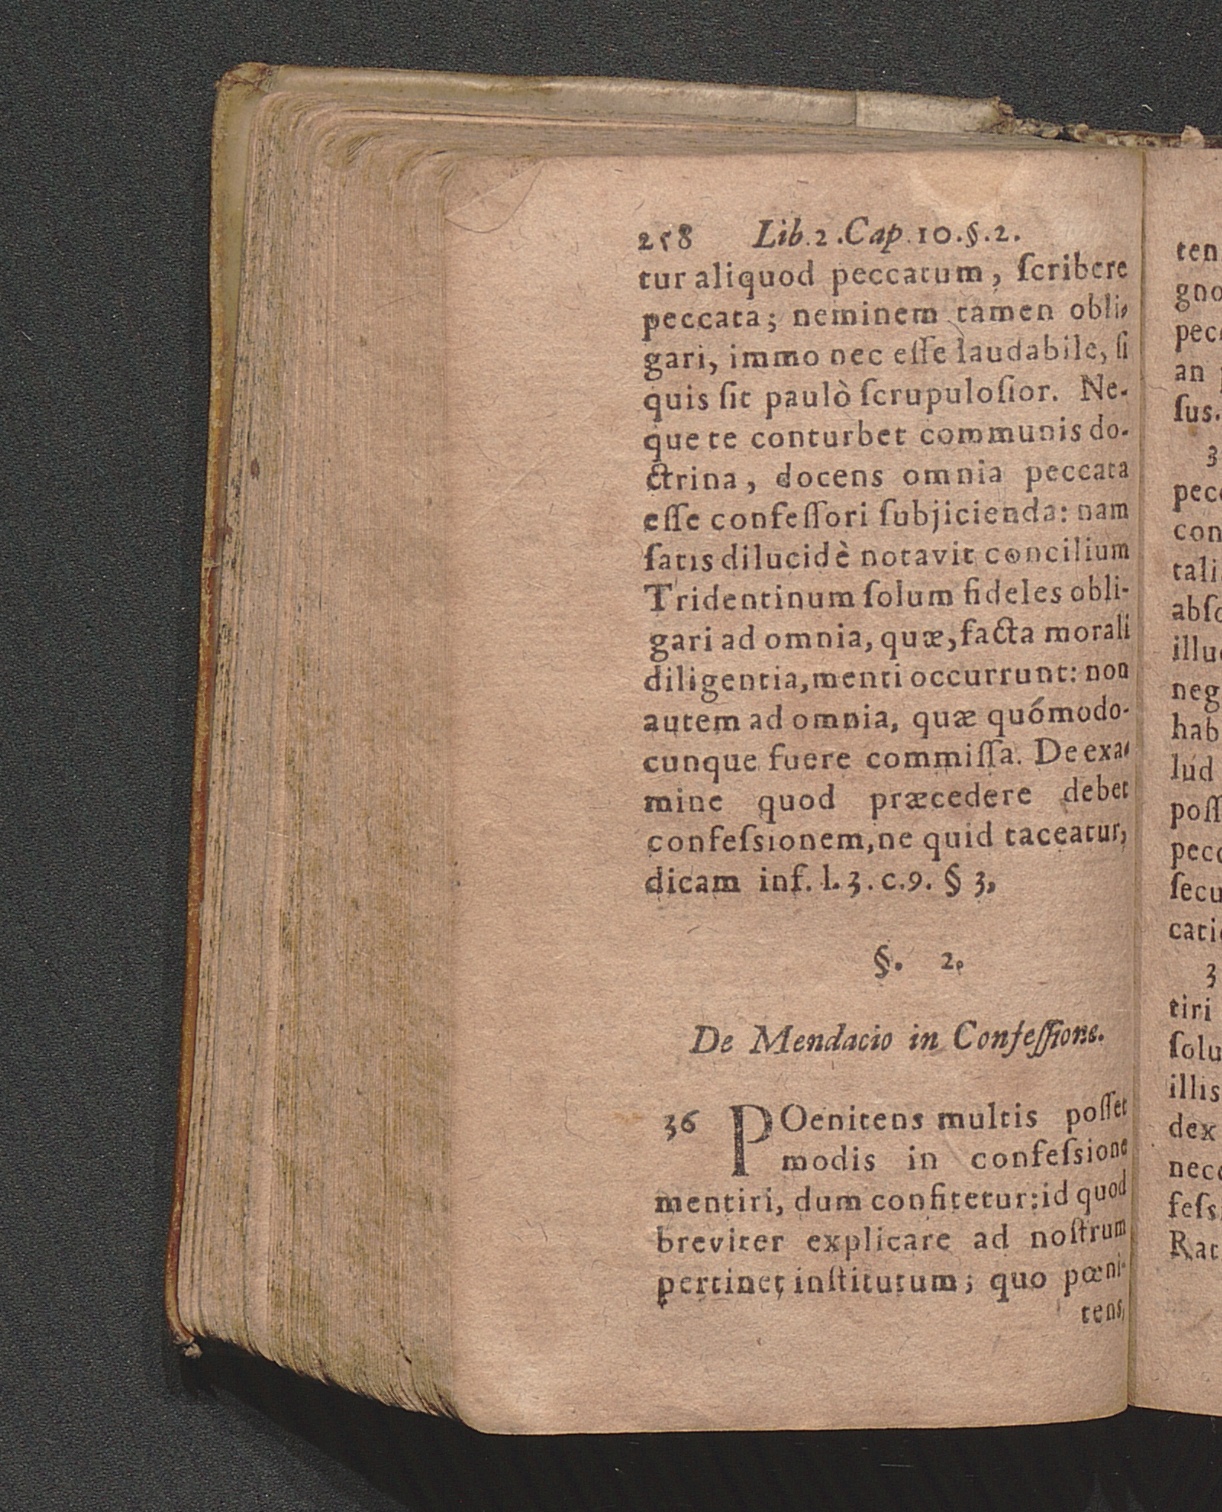 258 Lib.2.Cap.10.§.2.
tur aliquod peccatum, ſcribere
peccata; neminem tamen obli-
gari, immo nec eſſe laudabile, ſi
quis ſit paulò ſcrupuloſior. Ne-
que te conturbet communis do-
ctrina, docens omnia peccata
eſſe confeſſori ſubjicienda: nam
ſatis dilucidè notavit concilium
Tridentinum ſolum fideles obli-
gari ad omnia, quæ, facta morali
diligentia, menti occurrunt: non
autem ad omnia, quæ quómodo-
cunque fuere commiſſa. De exa-
mine quod præcedere debet
confeſsionem, ne quid taceatur,
dicam inf. l. 3. c. 9. § 3,
§. 2.
De Mendacio in Confeſſione.
36 POenitens multis poſſet
modis in confeſsione
mentiri, dum confitetur: id quod
breviter explicare ad noſtrum
pertinet inſtitutum; quo pœni-
tens,
ten
gno
pec
an
ſus.
3
pecc
con
tali
abſo
illu
neg
hab
lud
poſſ
pecc
ſecu
cati
3
tiri
ſolu
illis
dex
nec
feſs
Rat